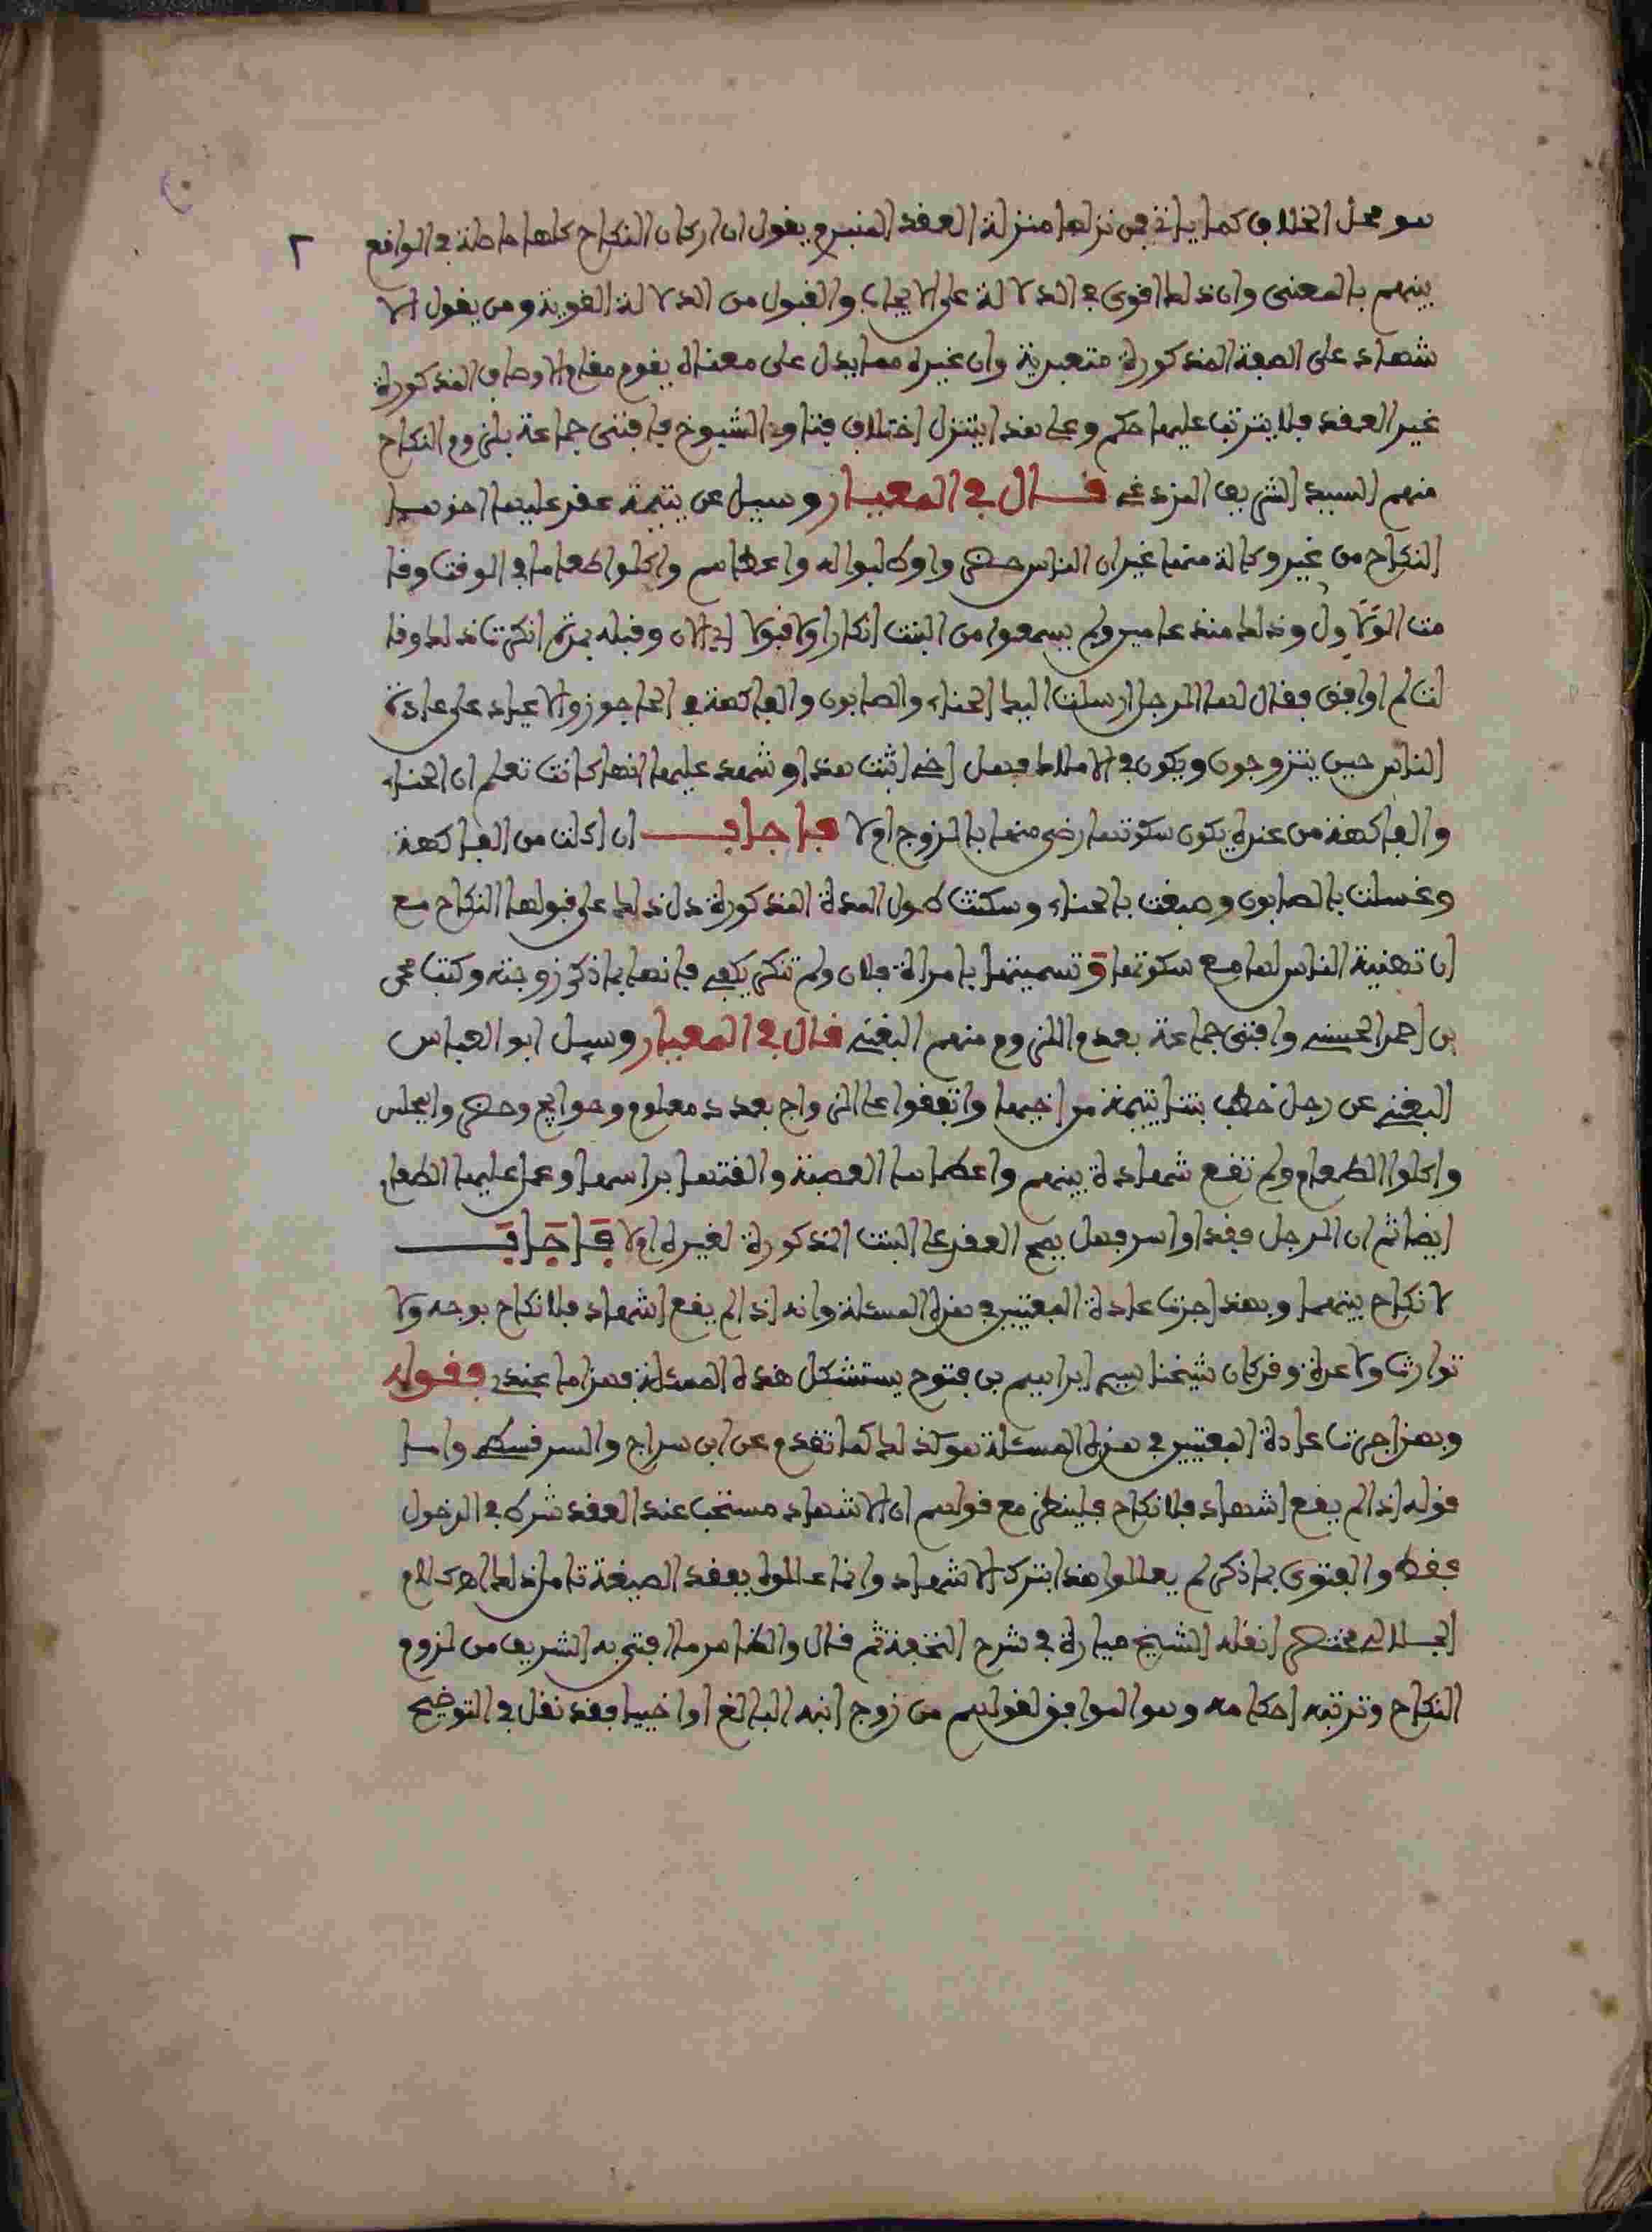 هو محل الخلاف كما ياتي فمن نزلها منزلة العقد المنبرم يقول ان اركان النكاح كلها حاصلة في الواقع ٢
بينهم بالمعنى وان ذلك اقوى في الدلالة على الايجاب والقبول من الدلالة القوية ومن يقول الا
شهاد على الصفة المذكورة متعبرية وان غيره مما يدل على معناه يقوم مقام الاوصاف المذكورة
غير العقد فلا يترتب عليها حكم وعلى هذا يتنزل اختلاف فتاوي الشيوخ فافتى جماعة بلزوم النكاح
منهم السيد الشريف المزدغي قال في المعيار وسيل عن يتيمة عقد عليها اخوها
النكاح من غير وكالة منها غير ان الناس حضروا وطلبوا له واعطاهم واكلوا طعاما في الوقت وقا
مت الولاول وذلك منذ عامين ولم يسمعوا من البنت انكارا ولا قبولا الى الان وقبله ثم انكرت ذلك وقا
لت لم اوافق فقال لها الرجل ارسلت اليك الحناء والصابون والفاكهة في العاجوز والاعياد على عادة
الناس حين يتزوجون ويكون في الاملاك فهل اذا ثبت هذا وشهد عليها انها كانت تعلم ان الحناء
والفاكهة من عنده يكون سكوتها رضى منها بالزوج اولا فاجاب ان اكلت من الفاكهة
وغسلت بالصابون وصبغت بالحناء وسكتت طول المدة المذكورة دل ذلك على قبولها النكاح مع
ان تهنية الناس لها مع سكوتها وتسميتها بامراة فلان ولم تنكر يكفي فانها بما ذكر زوجته وكتب محمد
بن احمد الحسني وافتى جماعة بعدم اللزوم منهم البقني قال في المعيار وسيل ابو العباس
البقني عن رجل خطب بنتا يتيمة من اخيها واتفقوا على الزواج بعدد معلوم وحوايج وحضروا بمجلس
واكلوا الطعام ولم تقع شهادة بينهم واعطاها العصبة والقتها براسها وعمل عليها الطعام
ايضا ثم ان الرجل فقد او اسر فهل يصح العقد على البنت المذكورة لغيره اولا فاجاب
لا نكاح بينهما وبهذا جرت عادة المفتيين في هذه المسئلة وانه اذا لم يقع اشهاد فلا نكاح بوجه ولا
توارث ولا عدة وقد كان شيخنا سيد ابراهيم بن فتوح يستشكل هذه المسئلة فهذا ما عندي وقوله
وبهذا جرت عادة المفتيين في هذه المسئلة هو كذلك كما تقدم عن ابن سراج والسرقسطي واما
قوله اذا لم يقع اشهاد فلا نكاح فلينظر مع قولهم ان الاشهاد مستحب عند العقد شرط في الدخول
فقط والفتوى بما ذكر لم يعللوا هذا بترك الاشهاد وانما عللوه بفقد الصيغة تامل ذلك اهـ كلام
الجلالي مختصرا نقله الشيخ ميارة في شرح التحفة ثم قال والظاهر ما افتى به الشريف من لزوم
النكاح وترتبه احكامه وهو الموافق لقولهم من زوج ابنه البالغ او اجنبيا فقد نقل في التوضيح